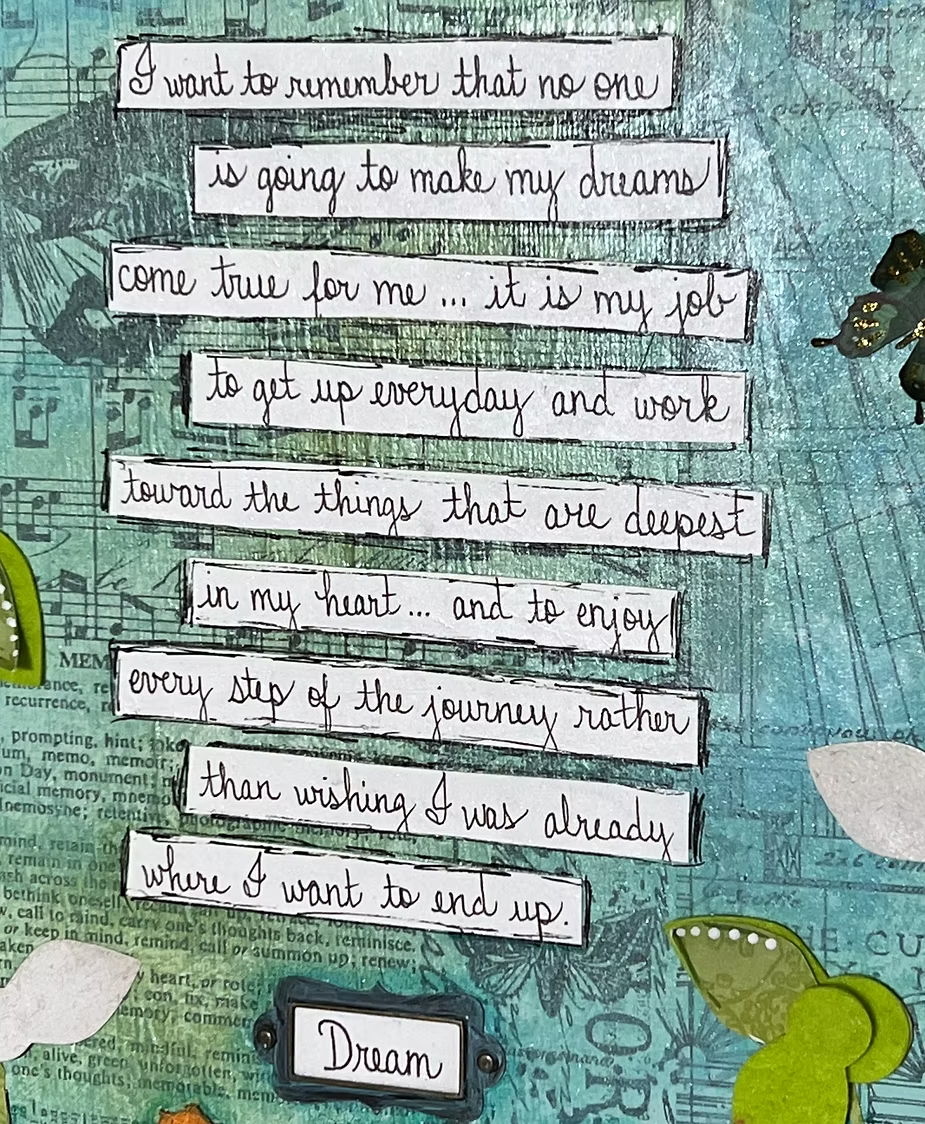 I want to remember that no one
is going to make my dreams
come true for me ... it is my job
to get up everyday and work
toward the things that are deepest
in my heart ... and to enjoy
every step of the journey rather
than wishing I was already
where I want to end up.
MEM
recurrence,
prompting, hint;
um, memo, memoir;
n Day, monument;
cial memory,
lnemosyne; retentive, photographic memory
mind,
remain in one
across the
bethink oneself
call to mind, carry one's thoughts back, reminisce.
or keep in mind, remind, call or summon up; renew;
heart, or role;
con, fix, make
commen
mindful,
alive, green, unforgotten,
one's thoughts; memorable,
Dream